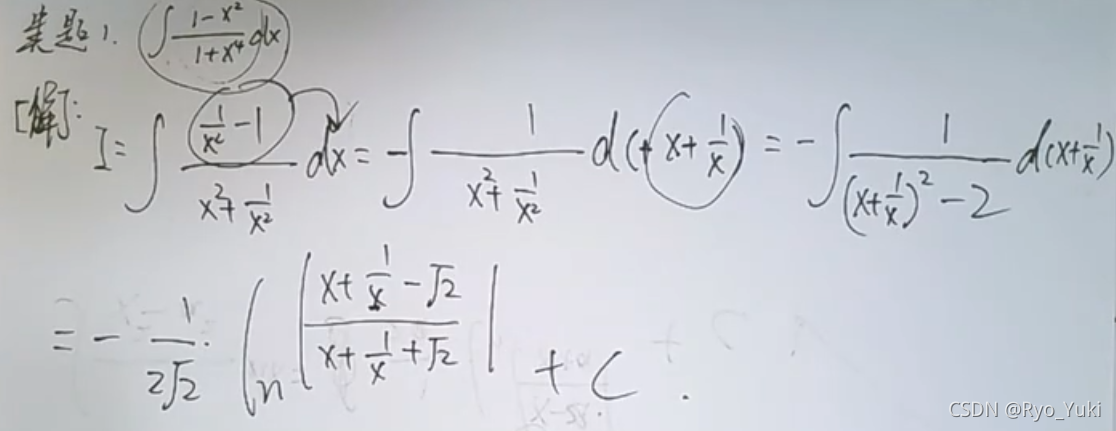 类题1. ∫ (1-x²)/(1+x⁴) dx
[解]: I = ∫ (1/x² - 1)/(x² + 1/x²) dx = -∫ 1/(x² + 1/x²) d(+x + 1/x) = -∫ 1/((x + 1/x)² - 2) d(x + 1/x)
= - 1/(2√2) · ln |(x + 1/x - √2)/(x + 1/x + √2)| + C.
CSDN @Ryo_Yuki